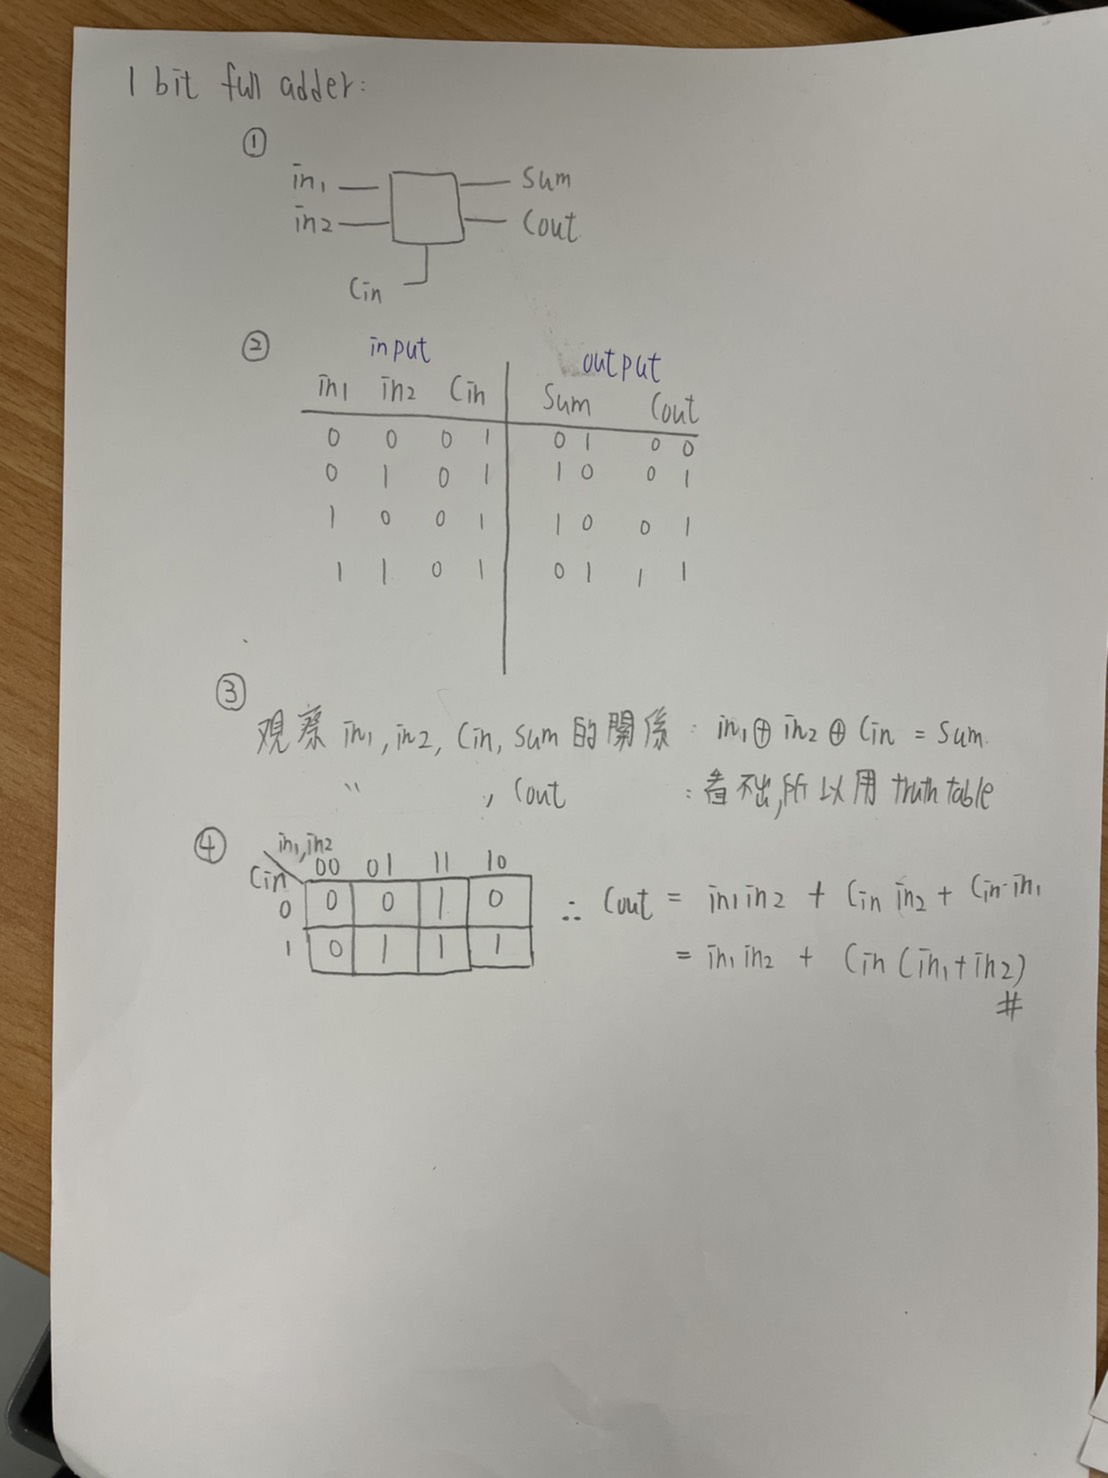 1 bit full adder:
①
in1 Sum
in2 Cout
Cin
②
input output
in1 in2 Cin Sum Cout
0 0 0 1 0 1 0 0
0 1 0 1 1 0 0 1
1 0 0 1 1 0 0 1
1 1 0 1 0 1 1 1
③
观察 in1, in2, Cin, Sum 的關係: in1 ⊕ in2 ⊕ Cin = Sum.
〃 , Cout : 看不出,所以用 truth table
④
in1, in2
Cin 00 01 11 10
0 0 0 1 0 ∴ Cout = in1 in2 + Cin in2 + Cin·in1
1 0 1 1 1 = in1 in2 + Cin (in1 + in2)
#